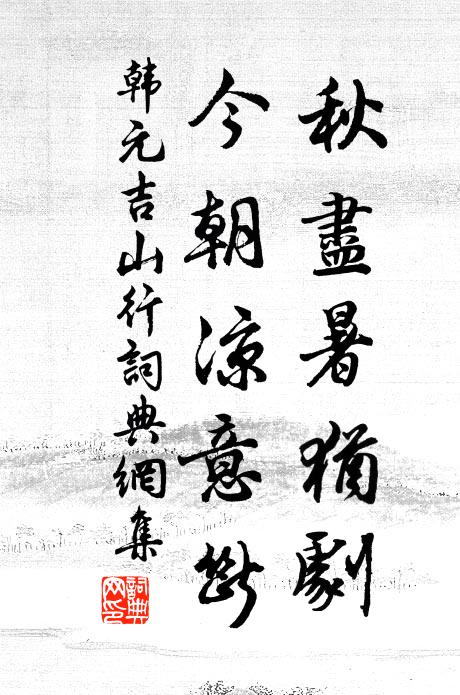 秋盡暑猶劇
今朝涼意
韓元吉山行詞典網集
詞典
网印